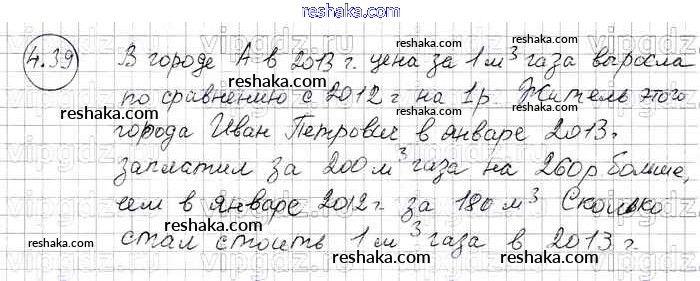 reshaka.com
4.39 В городе А в 2013 г. цена за 1 м³ газа выросла
по сравнению с 2012 г на 1 р. Житель этого
города Иван Петрович в январе 2013 г.
заплатил за 200 м³ газа на 260 р больше,
чем в январе 2012 г. за 180 м³ Сколько
стал стоить 1 м³ газа в 2013 г.
reshaka.com
reshaka.com
reshaka.com
reshaka.com
reshaka.com
reshaka.com
reshaka.com
reshaka.com